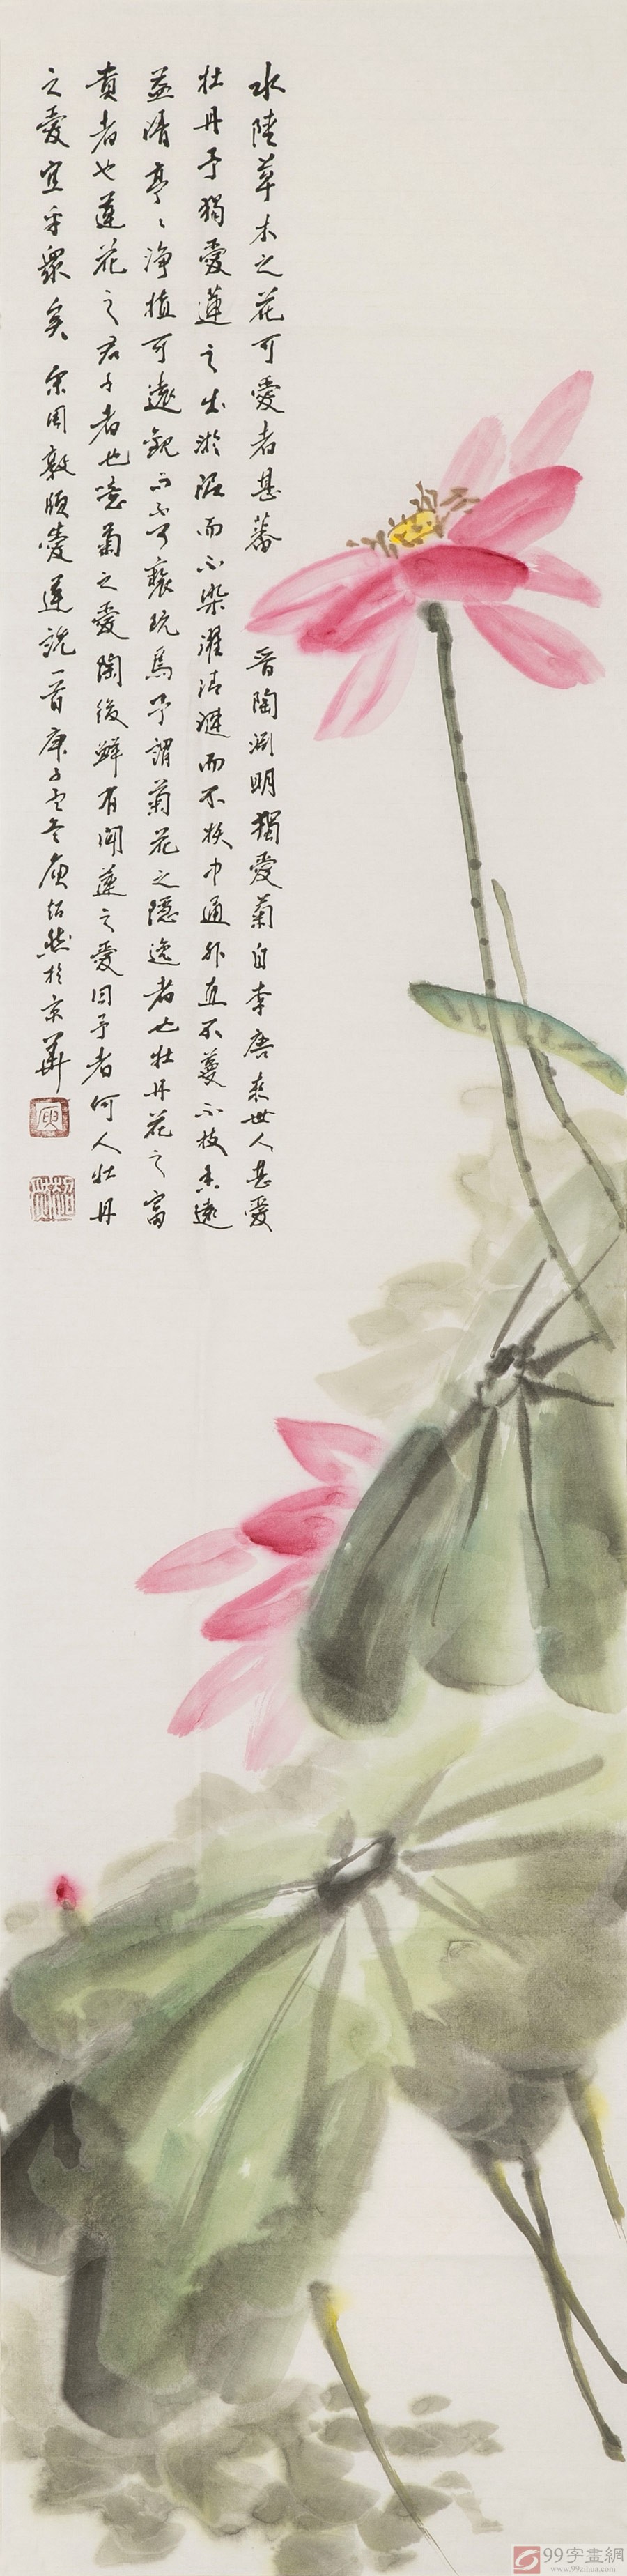 水陸草木之花可愛者甚蕃 晋陶渊明獨愛菊自李唐来世人甚愛
牡丹予獨愛蓮之出淤泥而不染濯清漣而不妖中通外直不蔓不枝香遠
益清亭亭淨植可遠觀而不可褻玩焉予謂菊花之隱逸者也牡丹花之富
貴者也蓮花之君子者也噫菊之愛陶後鮮有聞蓮之愛同予者何人牡丹
之愛宜乎衆矣 宋周敦頤愛蓮説一首庚子於京華
99字畫網
www.99zihua.com